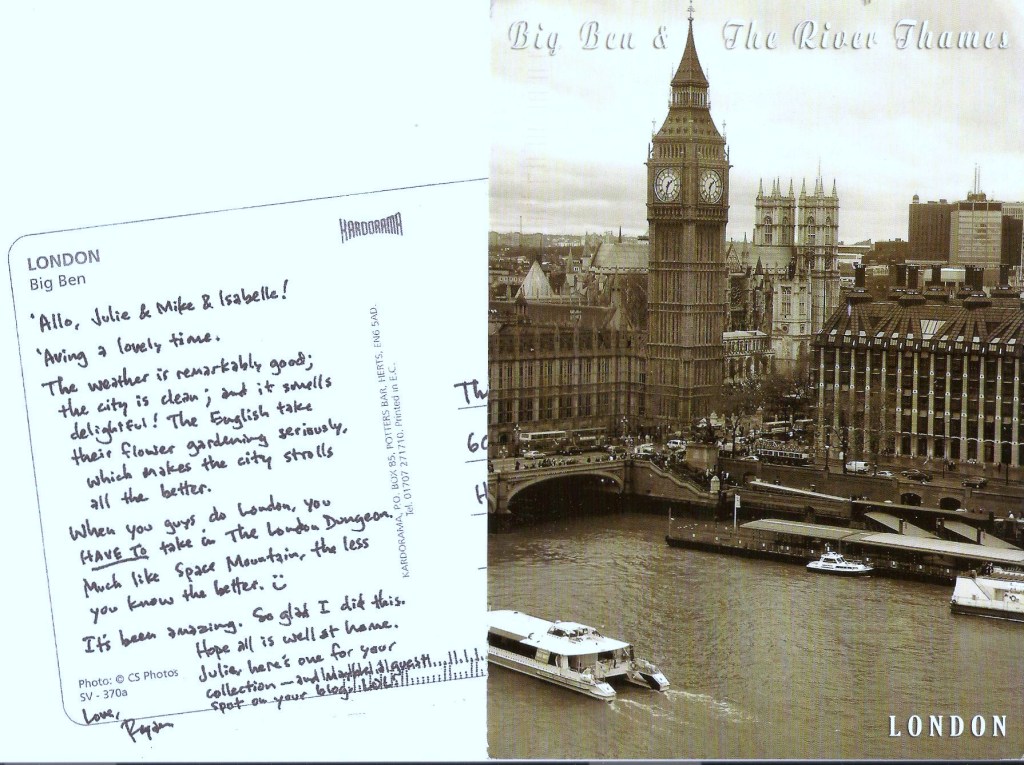 KARDORAMA
LONDON
Big Ben
'Allo, Julie & Mike & Isabelle!
'Aving a lovely time.
The weather is remarkably good;
the city is clean; and it smells
delightful! The English take
their flower gardening seriously,
which makes the city strolls
all the better.
When you guys do London, you
HAVE TO take in The London Dungeon.
Much like Space Mountain, the less
you know the better.
It's been amazing. So glad I did this.
Hope all is well at home.
Julie, here's one for your
collection — and a guest
spot on your blog!
Love,
Ryan
Photo: © CS Photos
SV - 370a
KARDORAMA, P.O. BOX 85, POTTERS BAR, HERTS, EN6 5AD.
Tel. 01707 271710. Printed in E.C.
Th
60
H
Big Ben & The River Thames
LONDON